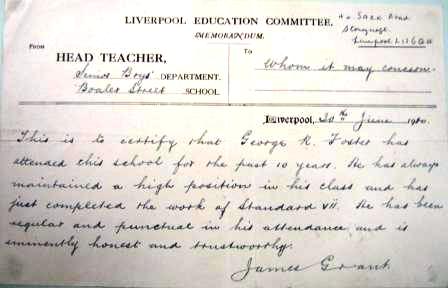 LIVERPOOL EDUCATION COMMITTEE,
MEMORANDUM.
Road
Stoneycroft
Liverpool L13 6QH
FROM
HEAD TEACHER,
Senior Boys' DEPARTMENT.
Boaler Street SCHOOL.
To
Whom it may concern.
Liverpool, 20th June 19
This is to certify that George R. Foster has
attended this school for the past 10 years. He has always
maintained a high position in his class and has
just completed the work of Standard VII. He has been
regular and punctual in his attendance and is
eminently honest and trustworthy.
James Grant.